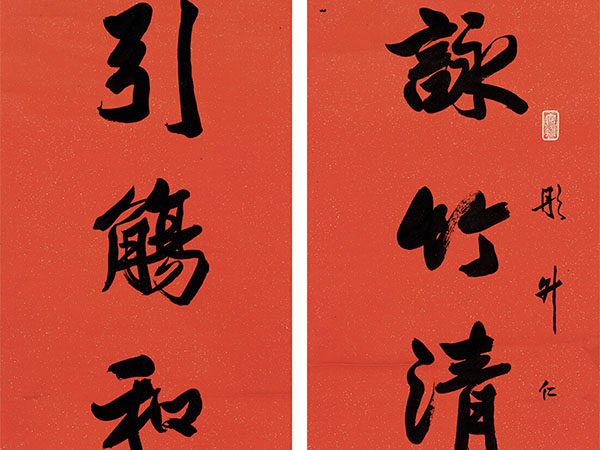 彤升仁
詠竹清
引觴和